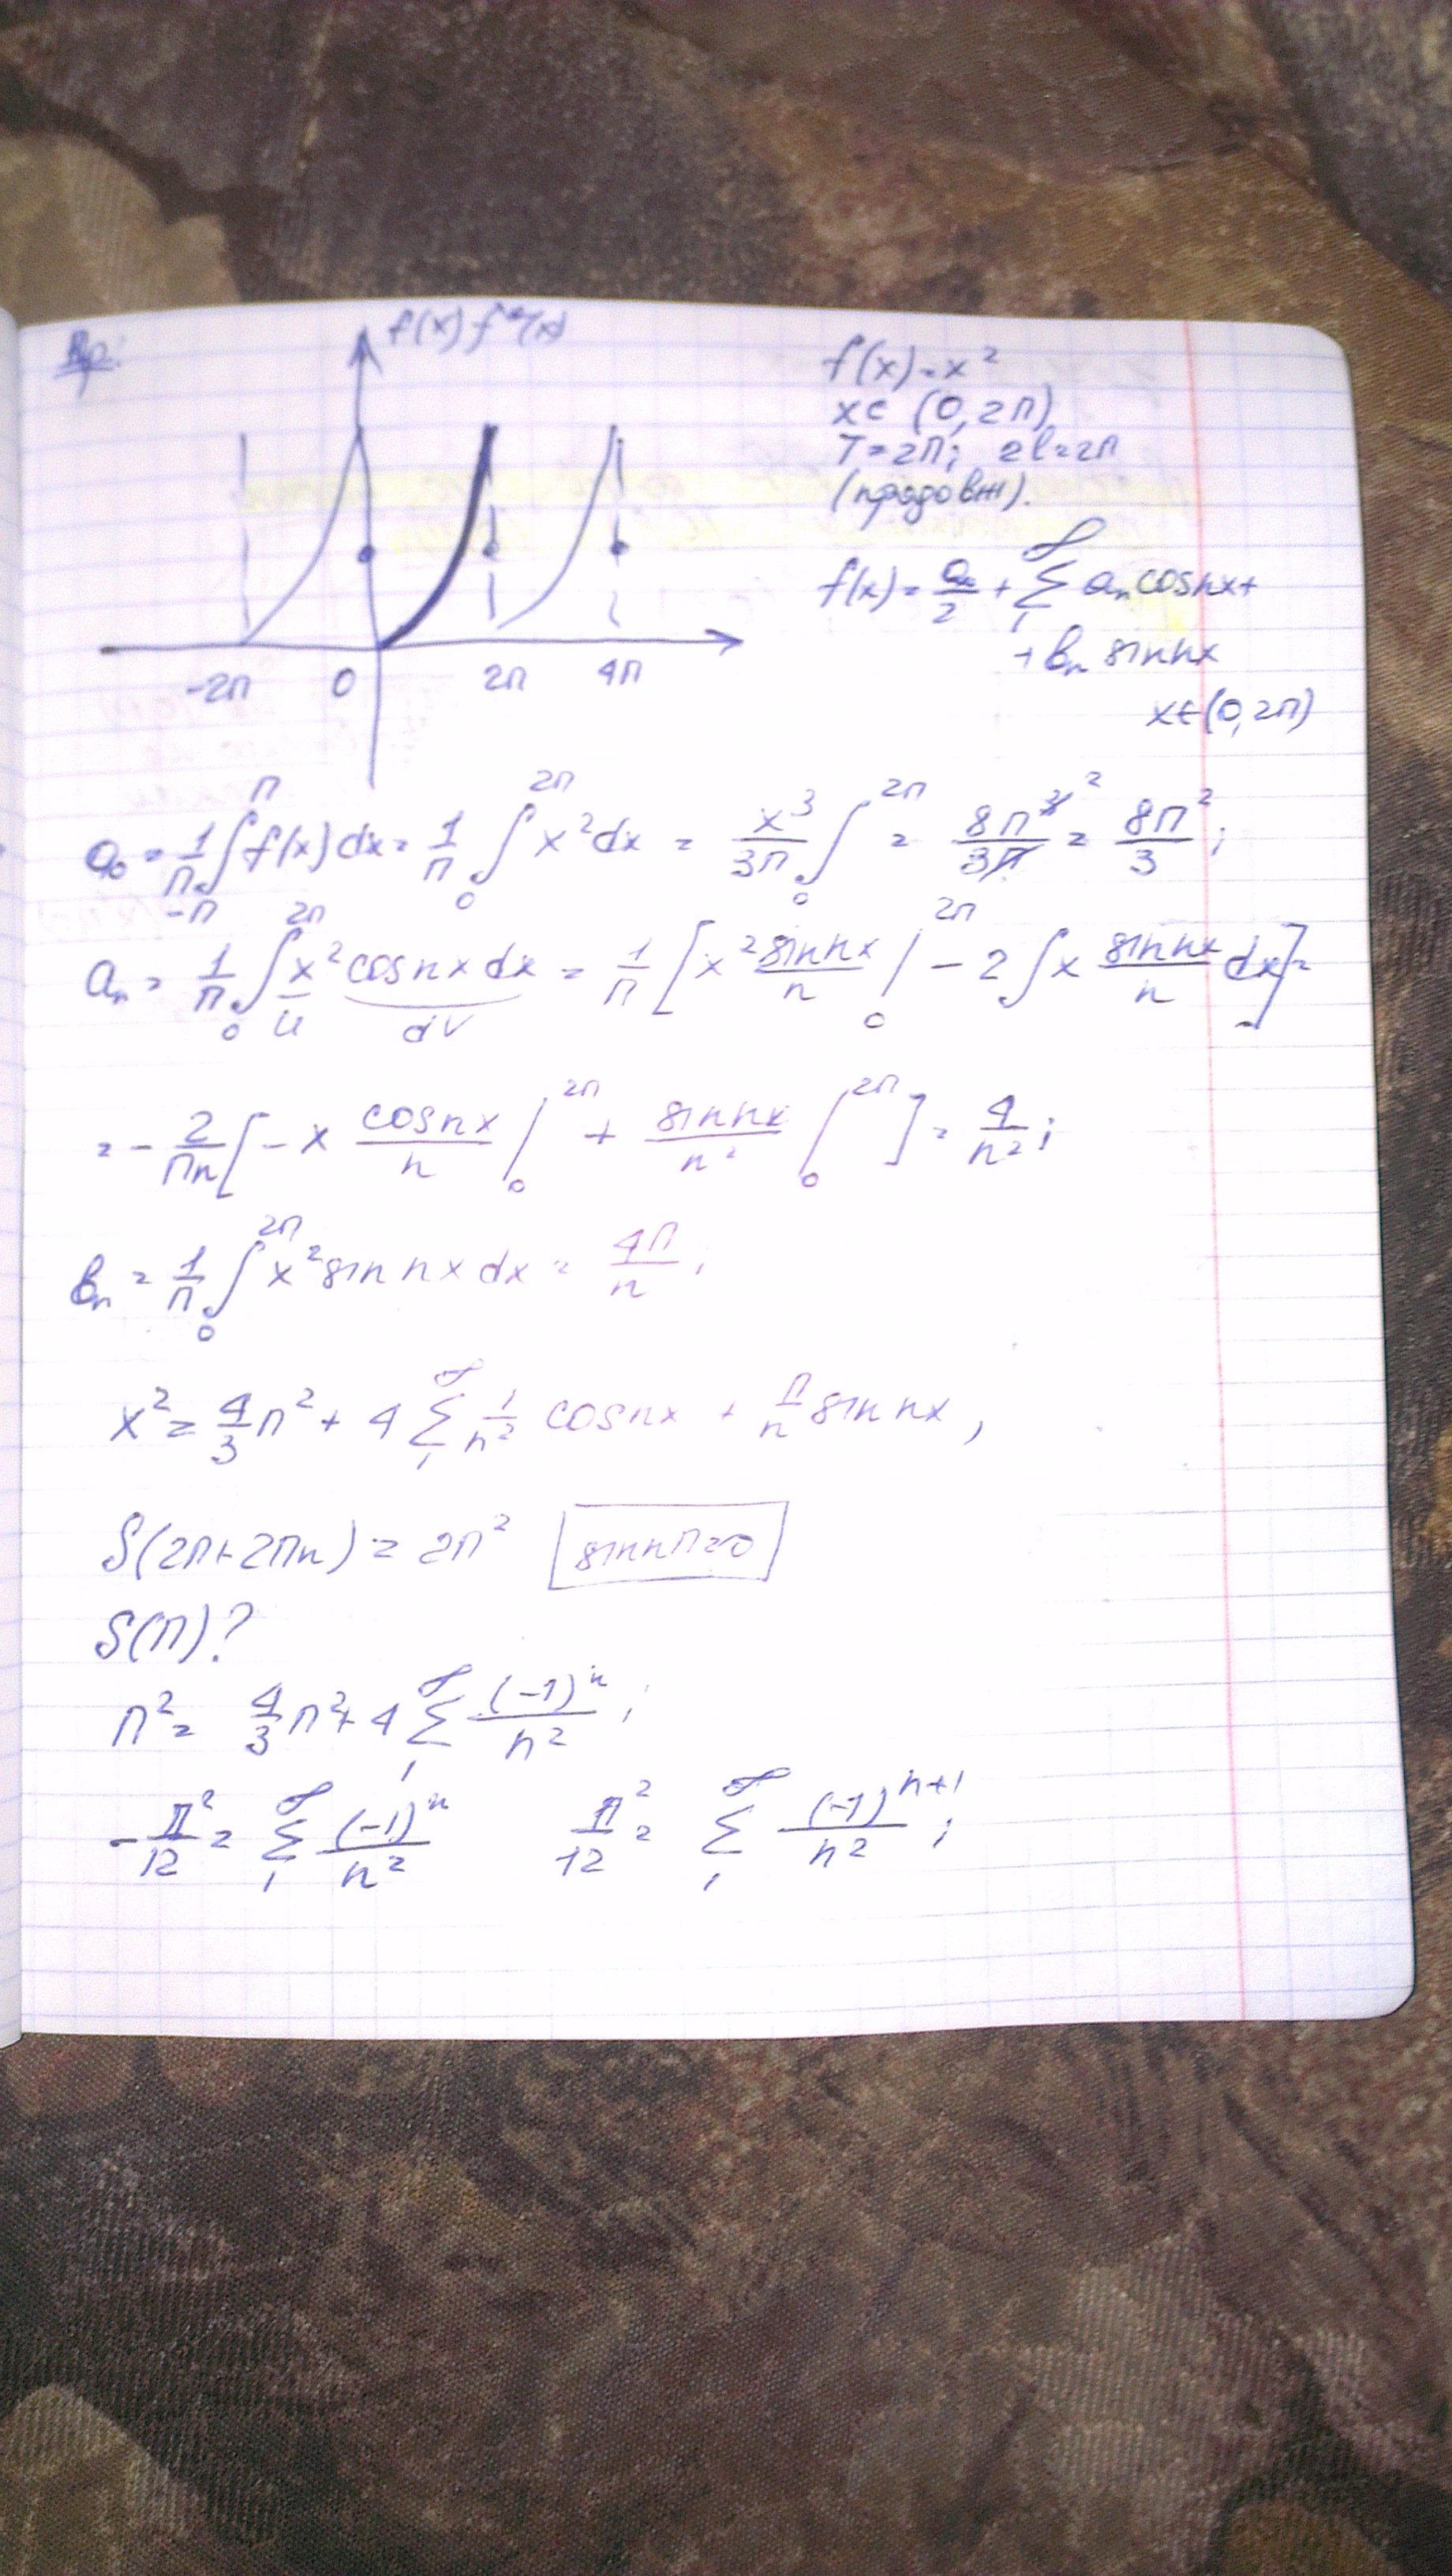 Пр:
f(x) f*(x)
-2π 0 2π 4π
f(x) = x²
x ∈ (0, 2π)
T = 2π; 2l = 2π
(продовж).
f(x) = a₀/2 + ∑₁^∞ aₙ cosnx +
+ bₙ sin nx
x ∈ (0, 2π)
a₀ = 1/π ∫_{-π}^{π} f(x) dx = 1/π ∫₀^{2π} x² dx = x³/3π |₀^{2π} = 8π³/3π = 8π²/3;
aₙ = 1/π ∫₀^{2π} x² cos nx dx = 1/π [x² sin nx/n |₀^{2π} - 2∫ x sin nx/n dx] =
u dv
= - 2/πn [-x cos nx/n |₀^{2π} + sin nx/n² |₀^{2π}] = 4/n²;
bₙ = 1/π ∫₀^{2π} x² sin nx dx = 4π/n;
x² = 4/3 π² + 4 ∑₁^∞ 1/n² cos nx + π/n sin nx,
S(2π+2πn) = 2π² sin nπ = 0
S(π)?
π² = 4/3 π² + 4 ∑₁^∞ (-1)ⁿ/n²;
-π²/12 = ∑₁^∞ (-1)ⁿ/n² π²/12 = ∑₁^∞ (-1)ⁿ⁺¹/n²;